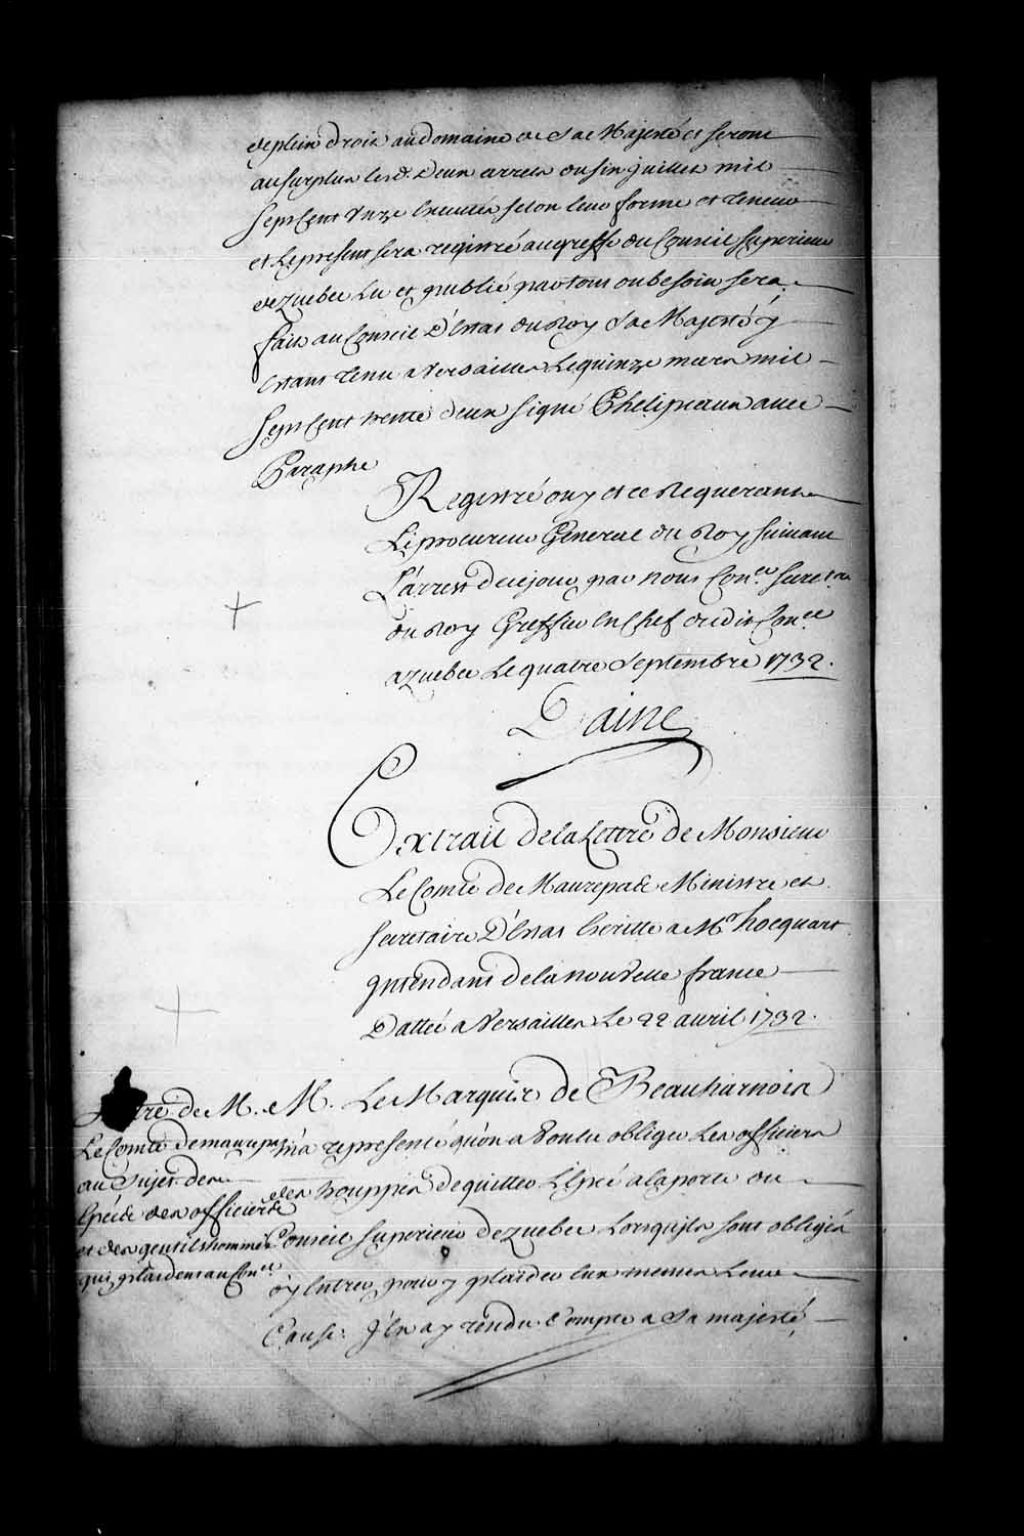 de plein droit au domaine de Sa Majesté et seront
au surplus lesd. deux arrests du six juillet mil
sept cent unze executés selon leur forme et teneur
et le present sera registré au greffe du Conseil superieur
de quebec lu et publié par tout ou besoin sera.
fait au Conseil D'Estat du Roy Sa Majesté y
estant tenu a Versailles le quinze mars mil
sept cent trente deux signé Phelipeaux avec
Paraphe
Registré ouy et ce Requerant
Le procureur General du Roy suivant
L'arrest de ce jour par nous Con.er secret.re
du Roy Greffier en Chef dudit Con.el
a quebec Le quatre Septembre 1732.
Daine
Extrait de la Lettre de Monsieur
Le Comte de Maurepas Ministre et
secretaire D'Estat Ecritte a Mr hocquart
Intendant de la nouvelle france
Dattée a Versailles Le 22 avril 1732.
Lettre de M.
Le Comte de maurepas
au Sujet des
Epéés des officiers
et des gentilshommes
qui plaident au Con.el
M. Le Marquis de Beauharnois
m'a representé qu'on a voulu obliger Les officiers
des trouppes de quitter L'Epée a la porte du
Conseil superieur de quebec Lorsqu'ils sont obligés
d'y entrer pour y plaider eux memes Leur
Cause. J'En ay rendu Compte a Sa majesté